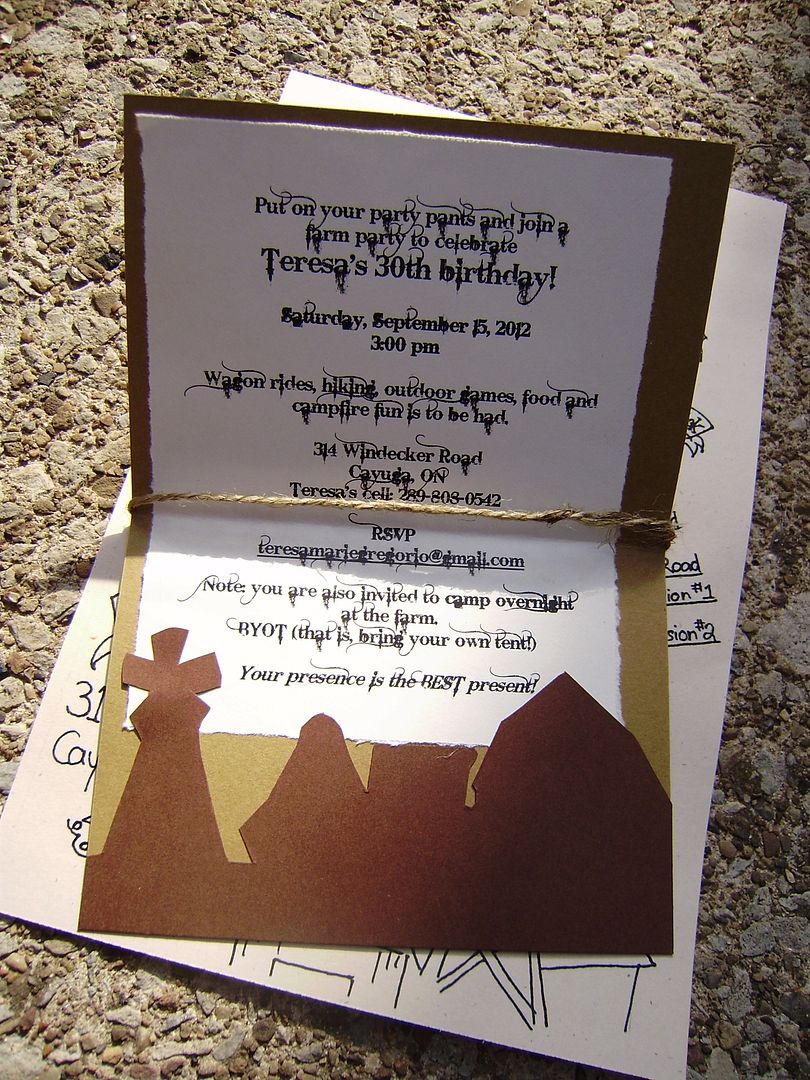 Put on your party pants and join a
farm party to celebrate
Teresa's 30th birthday!
Saturday, September 15, 2012
3:00 pm
Wagon rides, hiking, outdoor games, food and
campfire fun is to be had.
314 Windecker Road
Cayuga, ON
Teresa's cell: 289-808-0542
RSVP
teresamariegregorio@gmail.com
Note: you are also invited to camp overnight
at the farm.
BYOT (that is, bring your own tent!)
Your presence is the BEST present!
Road
#1
#2
31
Cay